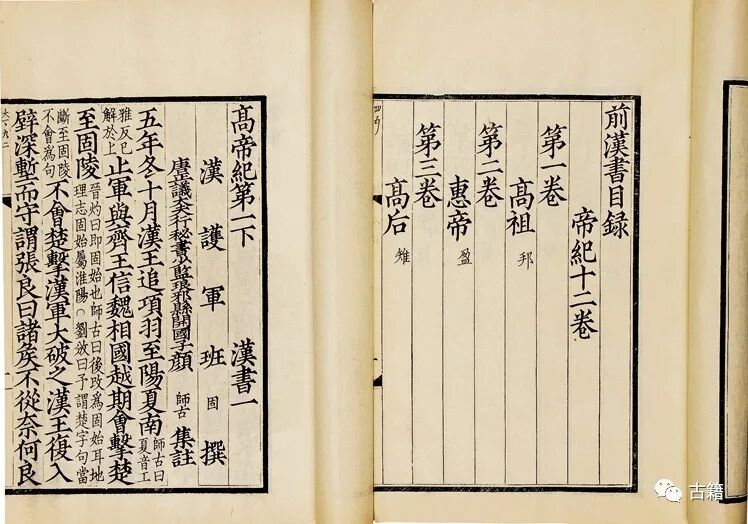 前漢書目録
帝紀十二卷
第一卷
髙祖 邦
第二卷
惠帝 盈
第三卷
髙后 雉
髙帝紀第一下 漢書一
漢護軍班固撰
唐正議大夫行秘書少監琅邪縣開國子顔師古集註
五年冬十月漢王追項羽至陽夏南師古曰夏音工
雅反已解於上止軍與齊王信魏相國越期會擊楚
至固陵晉灼曰即固始也師古曰後改為固始耳地理志固始屬淮陽○劉攽曰予謂楚字句當
斷至固陵不會為句不會楚擊漢軍大破之漢王復入
壁深塹而守謂張良曰諸侯不從奈何良
古籍